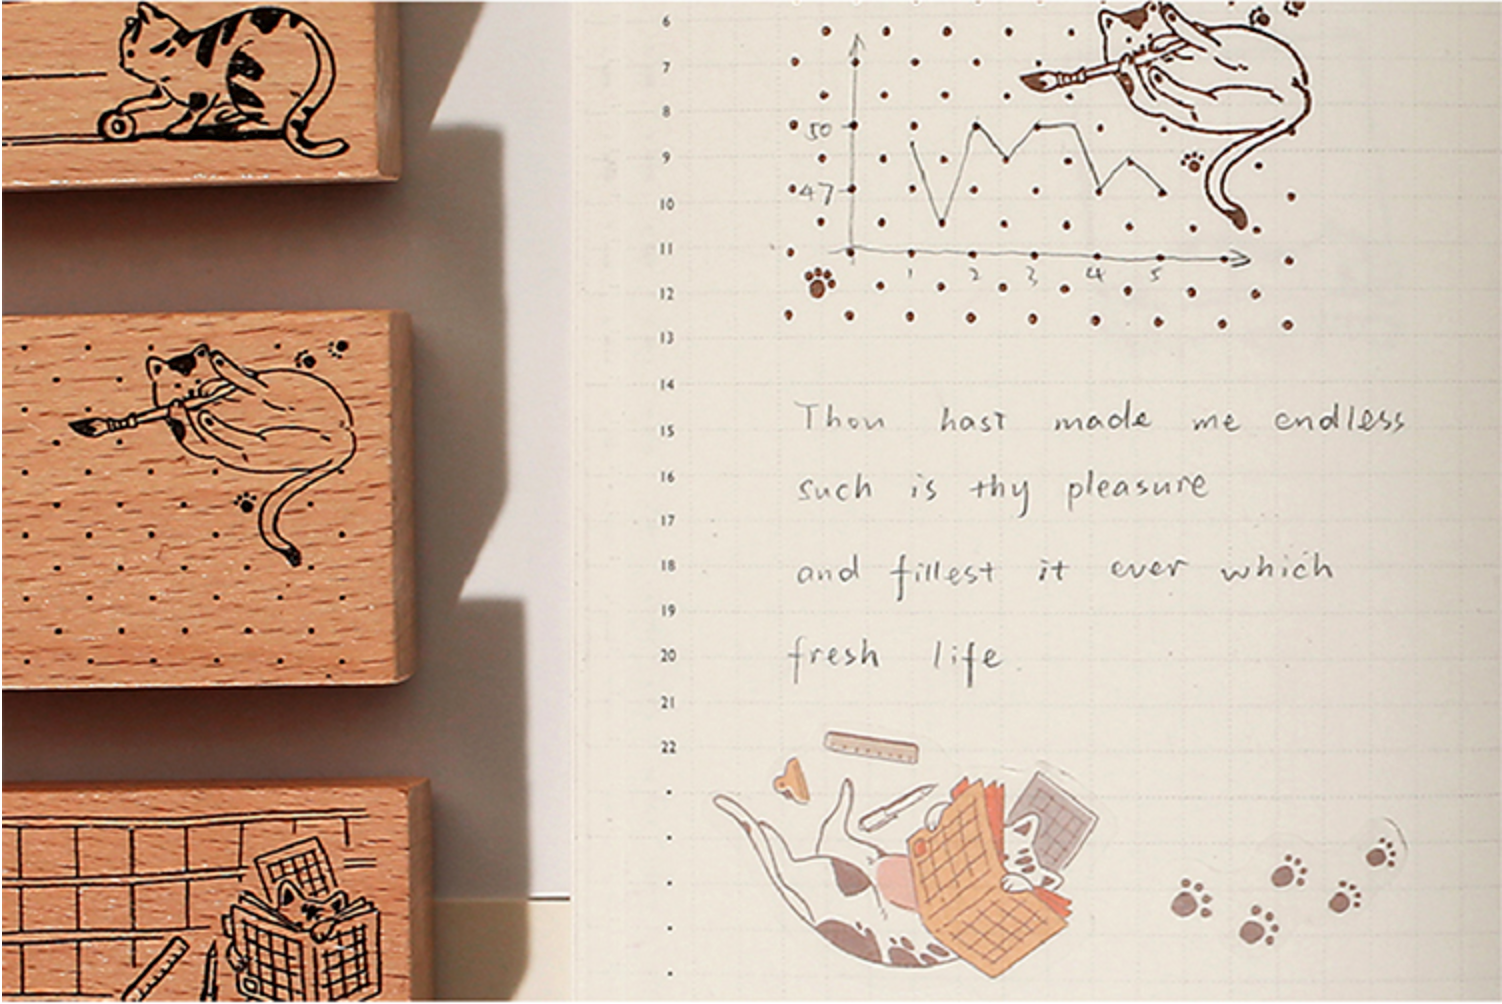 6
7
8
50
9
47
10
11
1 2 3 4 5
12
13
14
Thou hast made me endless
15
16
such is thy pleasure
17
18
and fillest it ever which
19
20
fresh life
21
22